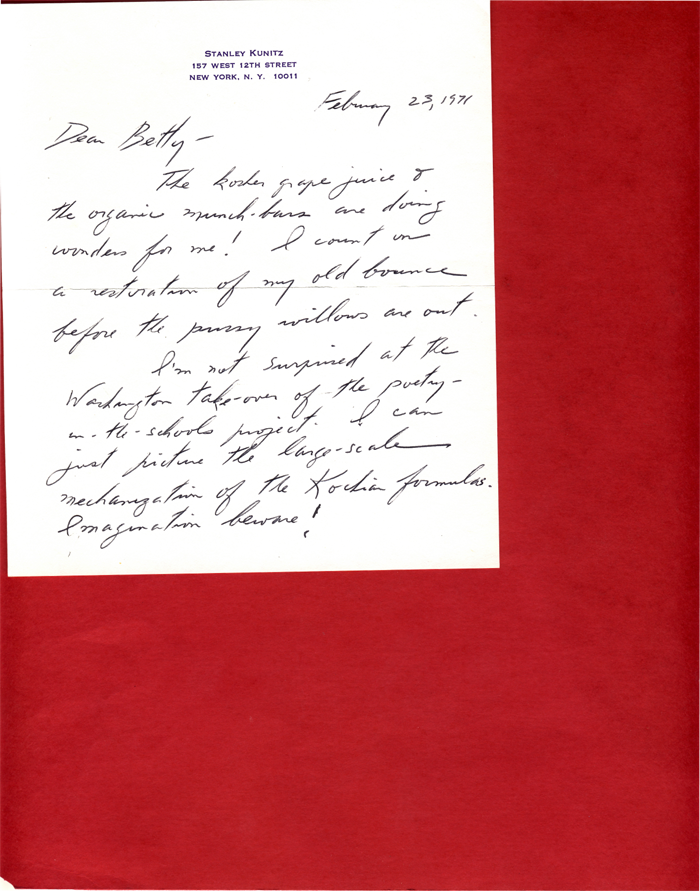 STANLEY KUNITZ
157 WEST 12TH STREET
NEW YORK, N. Y. 10011
February 23, 1971
Dear Betty —
The kosher grape juice &
the organic munch-bars are doing
wonders for me! I count on
a restoration of my old bounce
before the pussy willows are out.
I'm not surprised at the
Washington take-over of the poetry-
in-the-schools project. I can
just picture the large-scale
mechanization of the Kochian formulas.
Imagination beware!